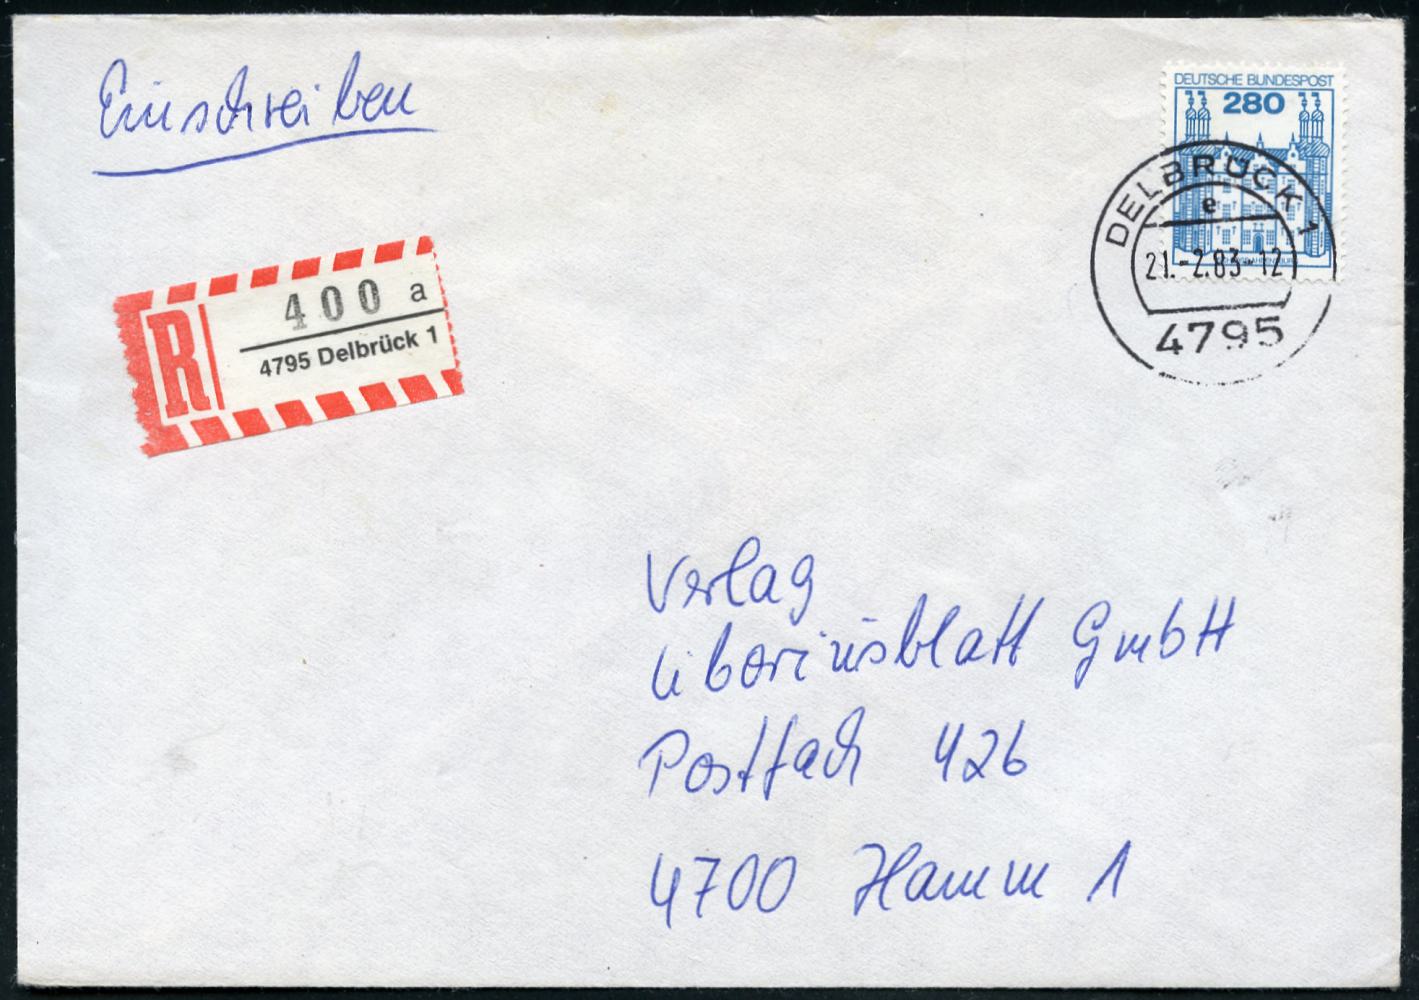 Einschreiben
DEUTSCHE BUNDESPOST
280
DELBRÜCK 1
e
21.-2.83-12
4795
R
400 a
4795 Delbrück 1
Verlag
Liboriusblatt GmbH
Postfach 426
4700 Hamm 1